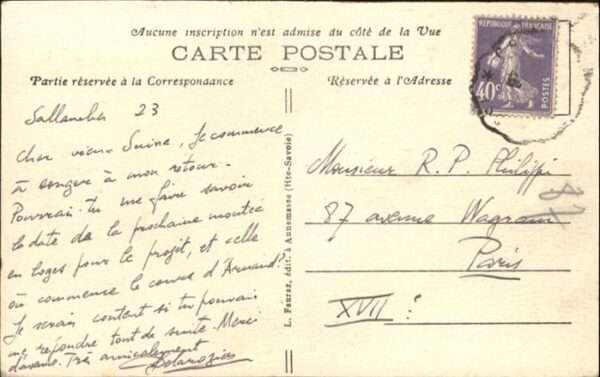 Aucune inscription n'est admise du côté de la Vue
CARTE POSTALE
Partie réservée à la Correspondance
Réservée à l'Adresse
RÉPUBLIQUE FRANÇAISE
40c
POSTES
Sallanches 23
Cher vieux, Je commence
à songer à mon retour.
Pourrais-tu me faire savoir
la date de la prochaine montée
en loges pour le projet, et celle
où commence le cours d'Armand?
Je serais content si tu pouvais
me répondre tout de suite. Merci
d'avance. Très amicalement
L. Fauraz, édit. à Annemasse (Hte-Savoie)
Monsieur R. P. Philippi
87 avenue Wagram
Paris
XVII e